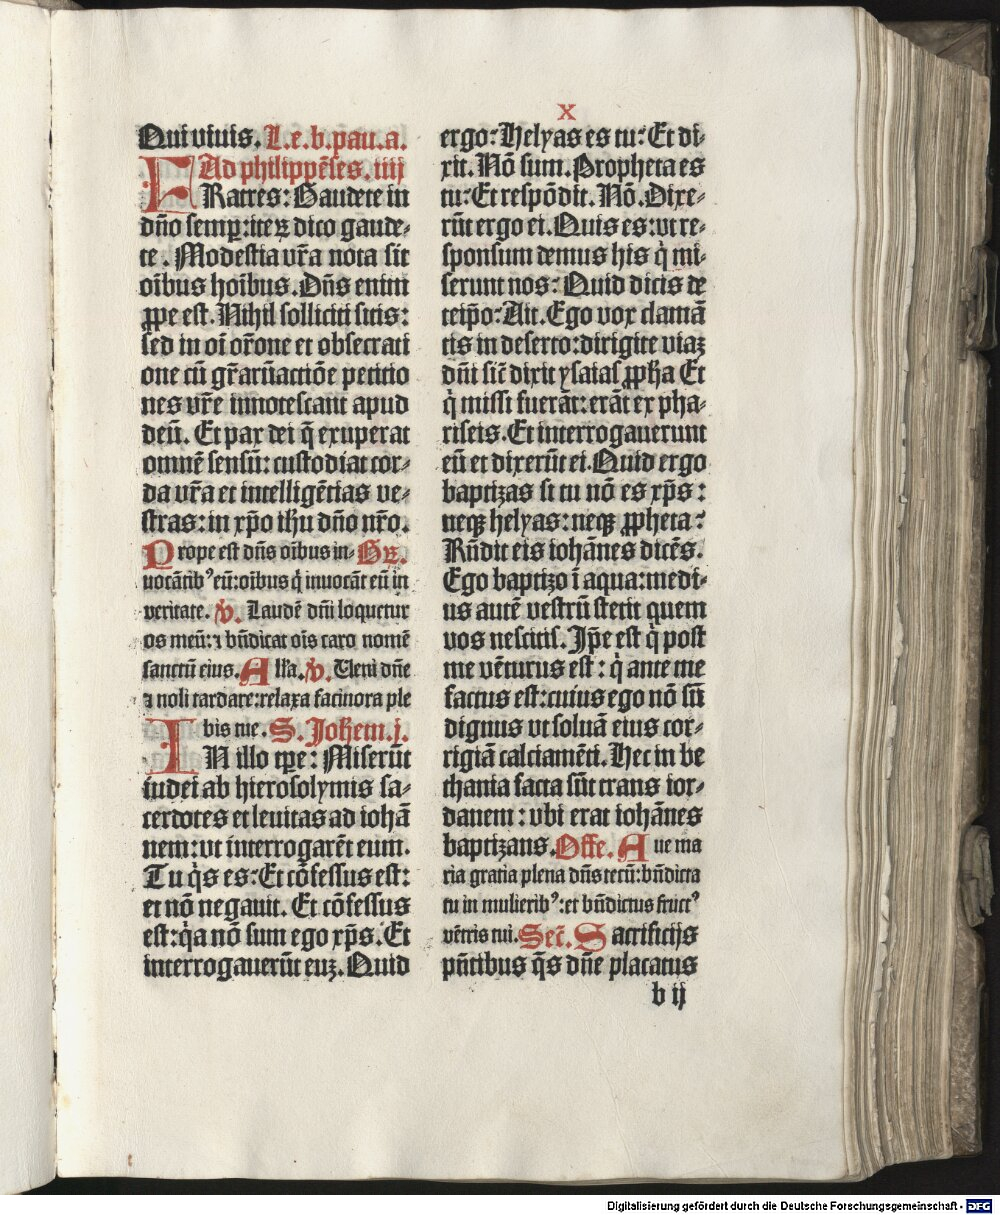 x
Qui viuis. L.e.b.pau.a.
Ad philippēses. iiij
FRatres: Gaudete in
dño semp: iteꝝ dico gaude⸗
te. Modestia vr̃a nota sit
oĩbus hoĩbus. Dñs enim
ꝓpe est. Nihil solliciti sitis:
sed in oĩ or̃one et obsecrati
one cũ gr̃arũactiõe petitio
nes vr̃e innotescant apud
deũ. Et pax dei q̃ exuperat
omnẽ sensũ: custodiat cor⸗
da vr̃a et intelligẽtias ve⸗
stras: in xp̃o ih̃u dño nr̃o.
Prope est dñs oĩbus in⸗ Gr̃.
uocãtib⁹ eũ: oĩbus q̇ inuocãt eũ in
veritate. v̇. Laudẽ dñi loquetur
os meũ: ⁊ bñdicat oĩs caro nomẽ
sanctũ eius. Alĩa. v̇. Veni dñe
⁊ noli tardare: relaxa facinora ple
bis tue. S. Joh̃em. j.
IN illo tꝑe: Miserũt
iudei ab hierosolymis sa⸗
cerdotes et leuitas ad iohã
nem: vt interrogarẽt eum.
Tu q̇s es: Et cõfessus est:
et nõ negauit. Et cõfessus
est: q̇a nõ sum ego xp̃s. Et
interrogauerũt euꝫ. Quid
ergo: Helyas es tu: Et di⸗
xit. Nõ sum. Propheta es
tu: Et respõdit. Nõ. Dixe⸗
rũt ergo ei. Quis es: vt re⸗
sponsum demus his q̇ mi⸗
serunt nos: Quid dicis de
teip̃o: Ait. Ego vox clamã
tis in deserto: dirigite viaꝫ
dñi sic̃ dixit ysaias ꝓph̃a Et
q̇ missi fuerãt: erãt ex pha⸗
riseis. Et interrogauerunt
eũ et dixerũt ei. Quid ergo
baptizas si tu nõ es xp̃s:
neqꝫ helyas: neqꝫ ꝓpheta:
Rñdit eis iohãnes dicẽs.
Ego baptizo ĩ aqua: medi⸗
us autẽ vestrũ stetit quem
vos nescitis. Ip̃e est q̇ post
me vẽturus est: q̇ ante me
factus est: cuius ego nõ sũ
dignus vt soluã eius cor⸗
rigiã calciamẽti. Hec in be
thania facta sũt trans ior⸗
danem: vbi erat iohãnes
baptizans. Offe. Aue ma
ria gratia plena dñs tecũ: bñdicta
tu in mulierib⁹: et bñdictus fruct⁹
vẽtris tui. Sec̃. Sacrificijs
pñtibus q̃s dñe placatus
b ij
Digitalisierung gefördert durch die Deutsche Forschungsgemeinschaft - DFG